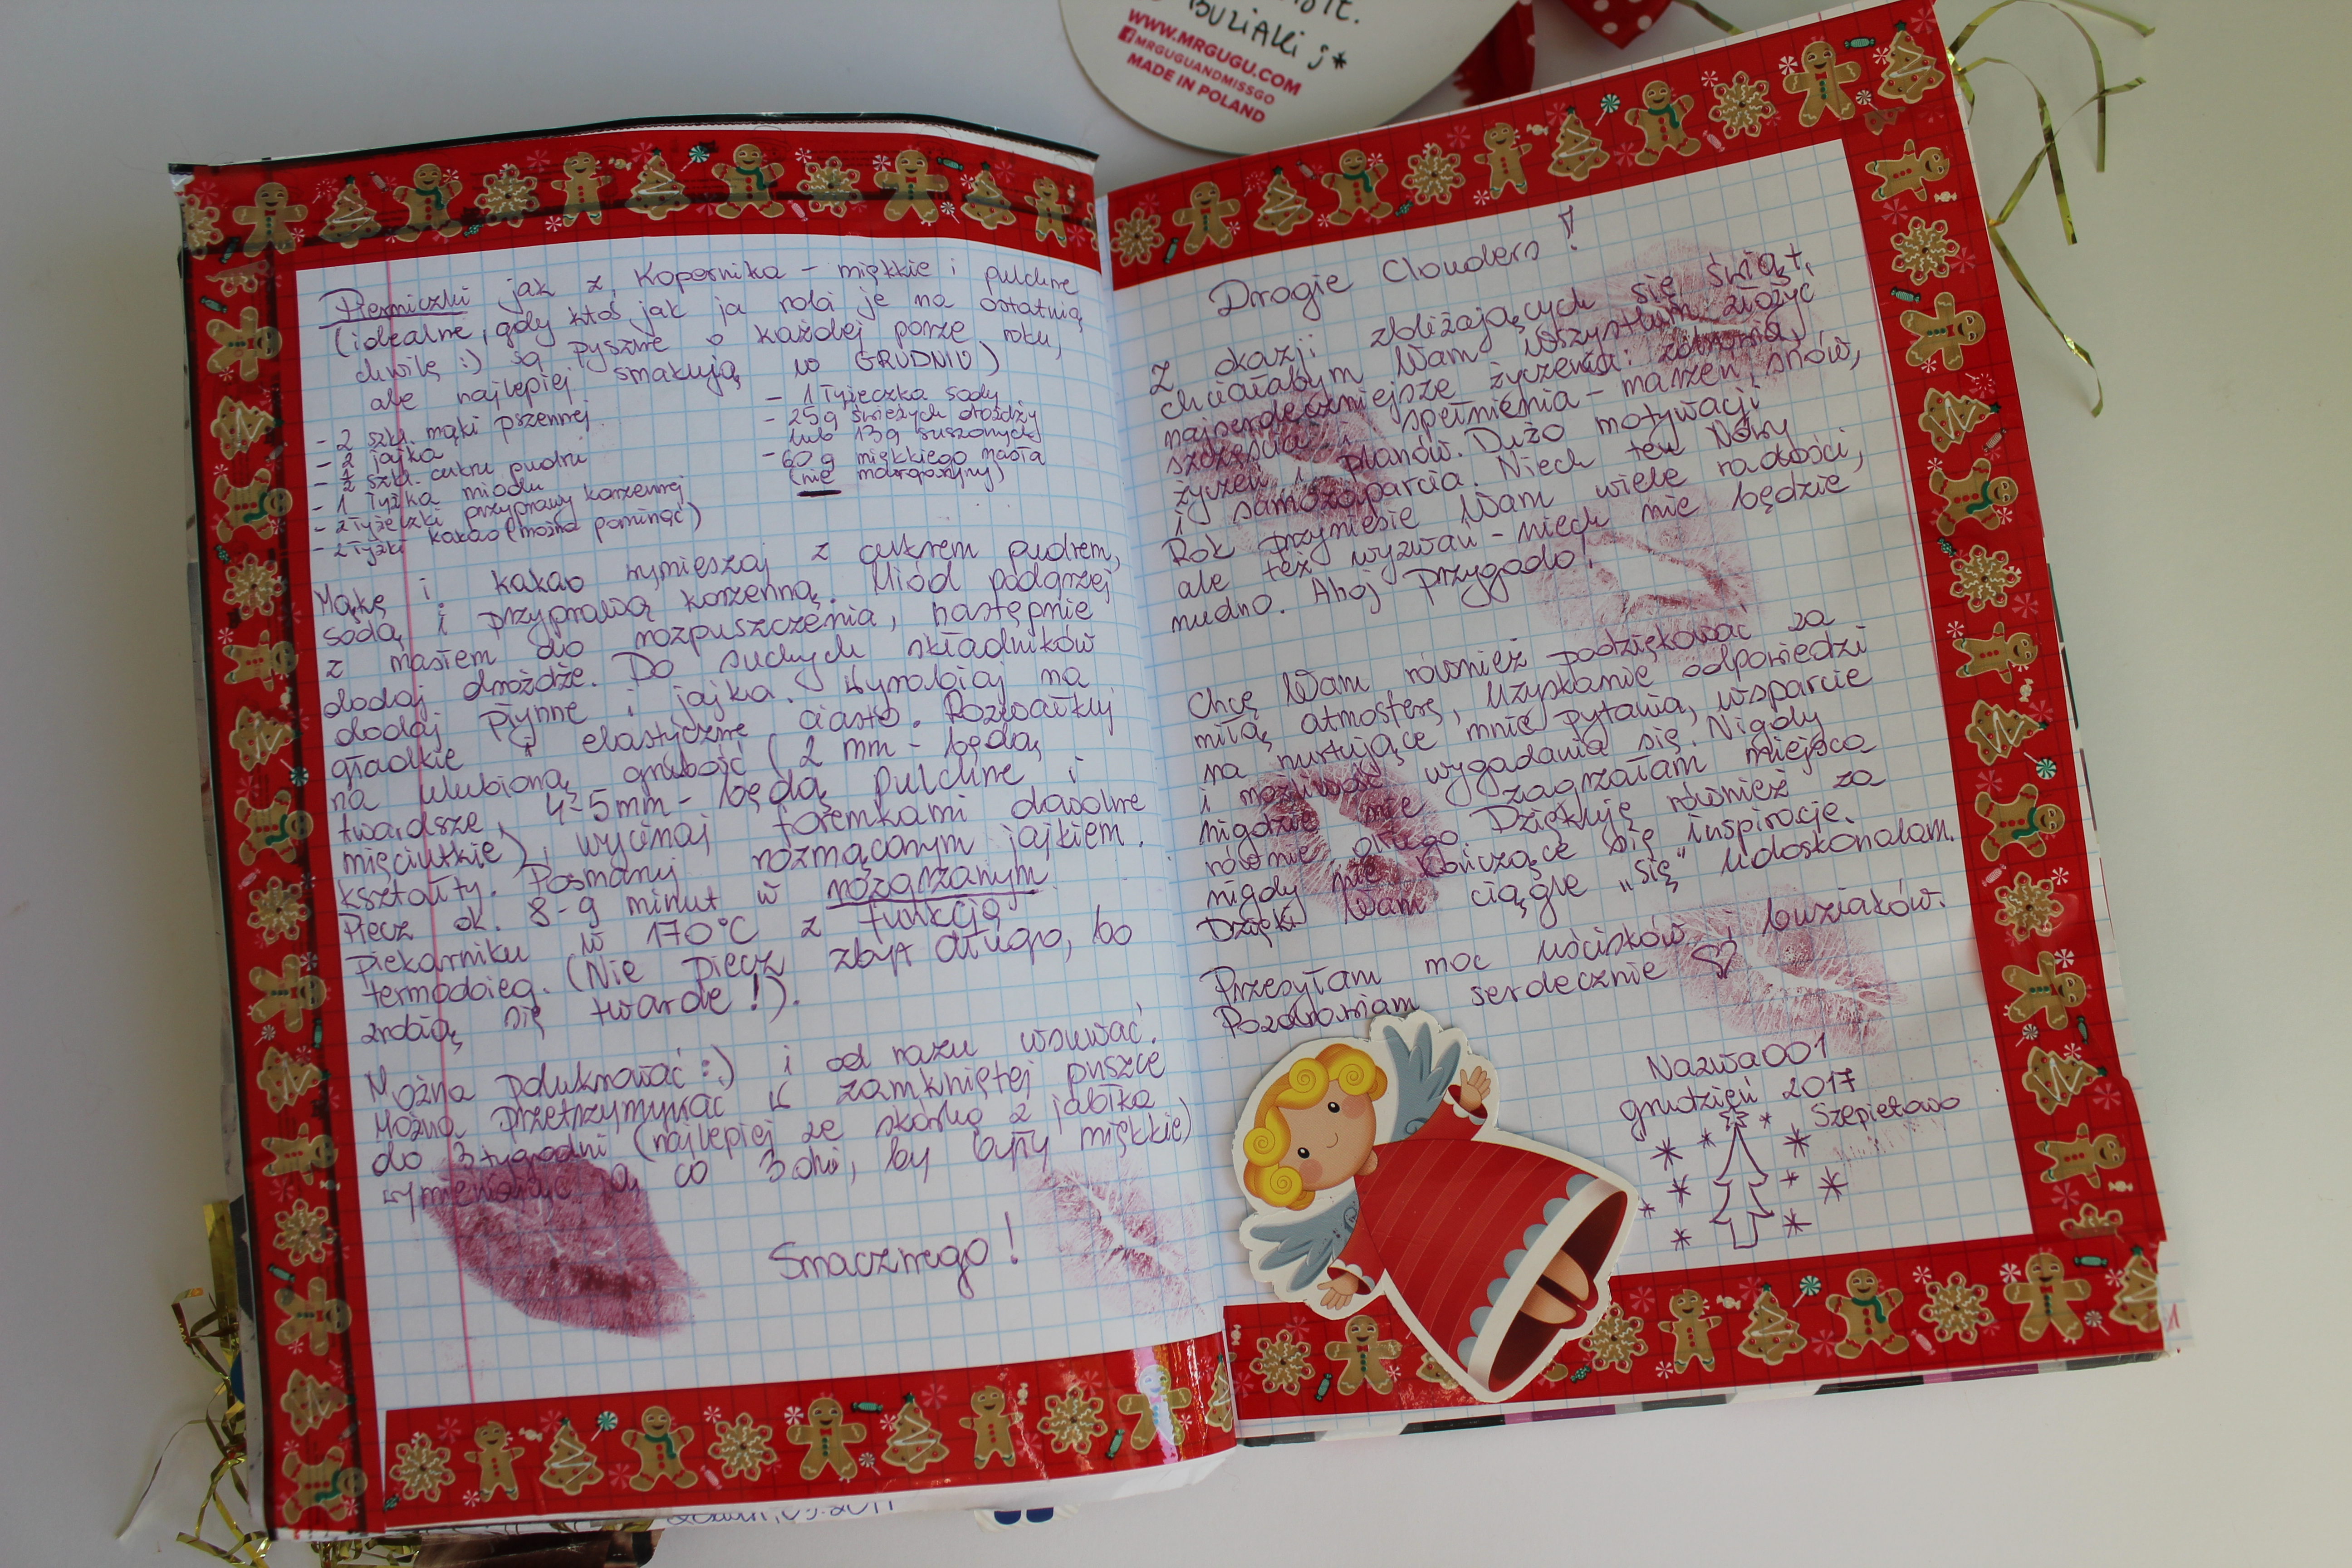 BUZIAKI ;*
WWW.MRGUGU.COM
MRGUGUANDMISSGO
MADE IN POLAND
Pierniczki jak z Kopernika - miękkie i pulchne
(idealne, gdy ktoś jak ja robi je na ostatnią
chwilę :) są pyszne o każdej porze roku,
ale najlepiej smakują w GRUDNIU)
- 2 szkl. mąki pszennej
- 2 jajka
- 1/2 szkl. cukru pudru
- 1 łyżka miodu
- 2 łyżeczki przyprawy korzennej
- 2 łyżki kakao (można pominąć)
- 1 łyżeczka sody
- 25g świeżych drożdży
lub 13g suszonych
- 60 g miękkiego masła
(nie margaryny)
Mąkę i kakao wymieszaj z cukrem pudrem,
sodą i przyprawą korzenną. Miód podgrzej
z masłem do rozpuszczenia, następnie
dodaj drożdże. Do suchych składników
dodaj płynne i jajka. Wyrabiaj na
gładkie i elastyczne ciasto. Rozwałkuj
na ulubioną grubość (2 mm - będą
twardsze, 4-5mm - będą pulchne i
mięciutkie), wycinaj foremkami dowolne
kształty. Posmaruj rozmąconym jajkiem.
Piecz ok. 8-9 minut w rozgrzanym
piekarniku w 170°C z funkcją
termoobieg. (Nie piecz zbyt długo, bo
zrobią się twarde!).
Można polukrować :) i od razu wsuwać.
Można przetrzymywać w zamkniętej puszce
do 3 tygodni (najlepiej ze skórką z jabłka
wymieniając ją co 3 dni, by były miękkie)
Smacznego!
Drogie Clouders!
Z okazji zbliżających się świąt,
chciałabym Wam wszystkim złożyć
najserdeczniejsze życzenia: zdrowia,
szczęścia i spełnienia - marzeń, snów,
życzeń i planów. Dużo motywacji
i samozaparcia. Niech ten Nowy
Rok przyniesie Wam wiele radości,
ale też wyzwań - niech nie będzie
nudno. Ahoj przygodo!
Chcę Wam również podziękować za
miłą atmosferę, uzyskanie odpowiedzi
na nurtujące mnie pytania, wsparcie
i możliwość wygadania się. Nigdy
nigdzie nie zagrzałam miejsca
równie długo. Dziękuję również za
nigdy nie kończące się inspiracje.
Dzięki Wam ciągle „się" udoskonalam.
Przesyłam moc uścisków i buziaków.
Pozdrawiam serdecznie ♡
Nazwa001
grudzień 2017
Szepietowo